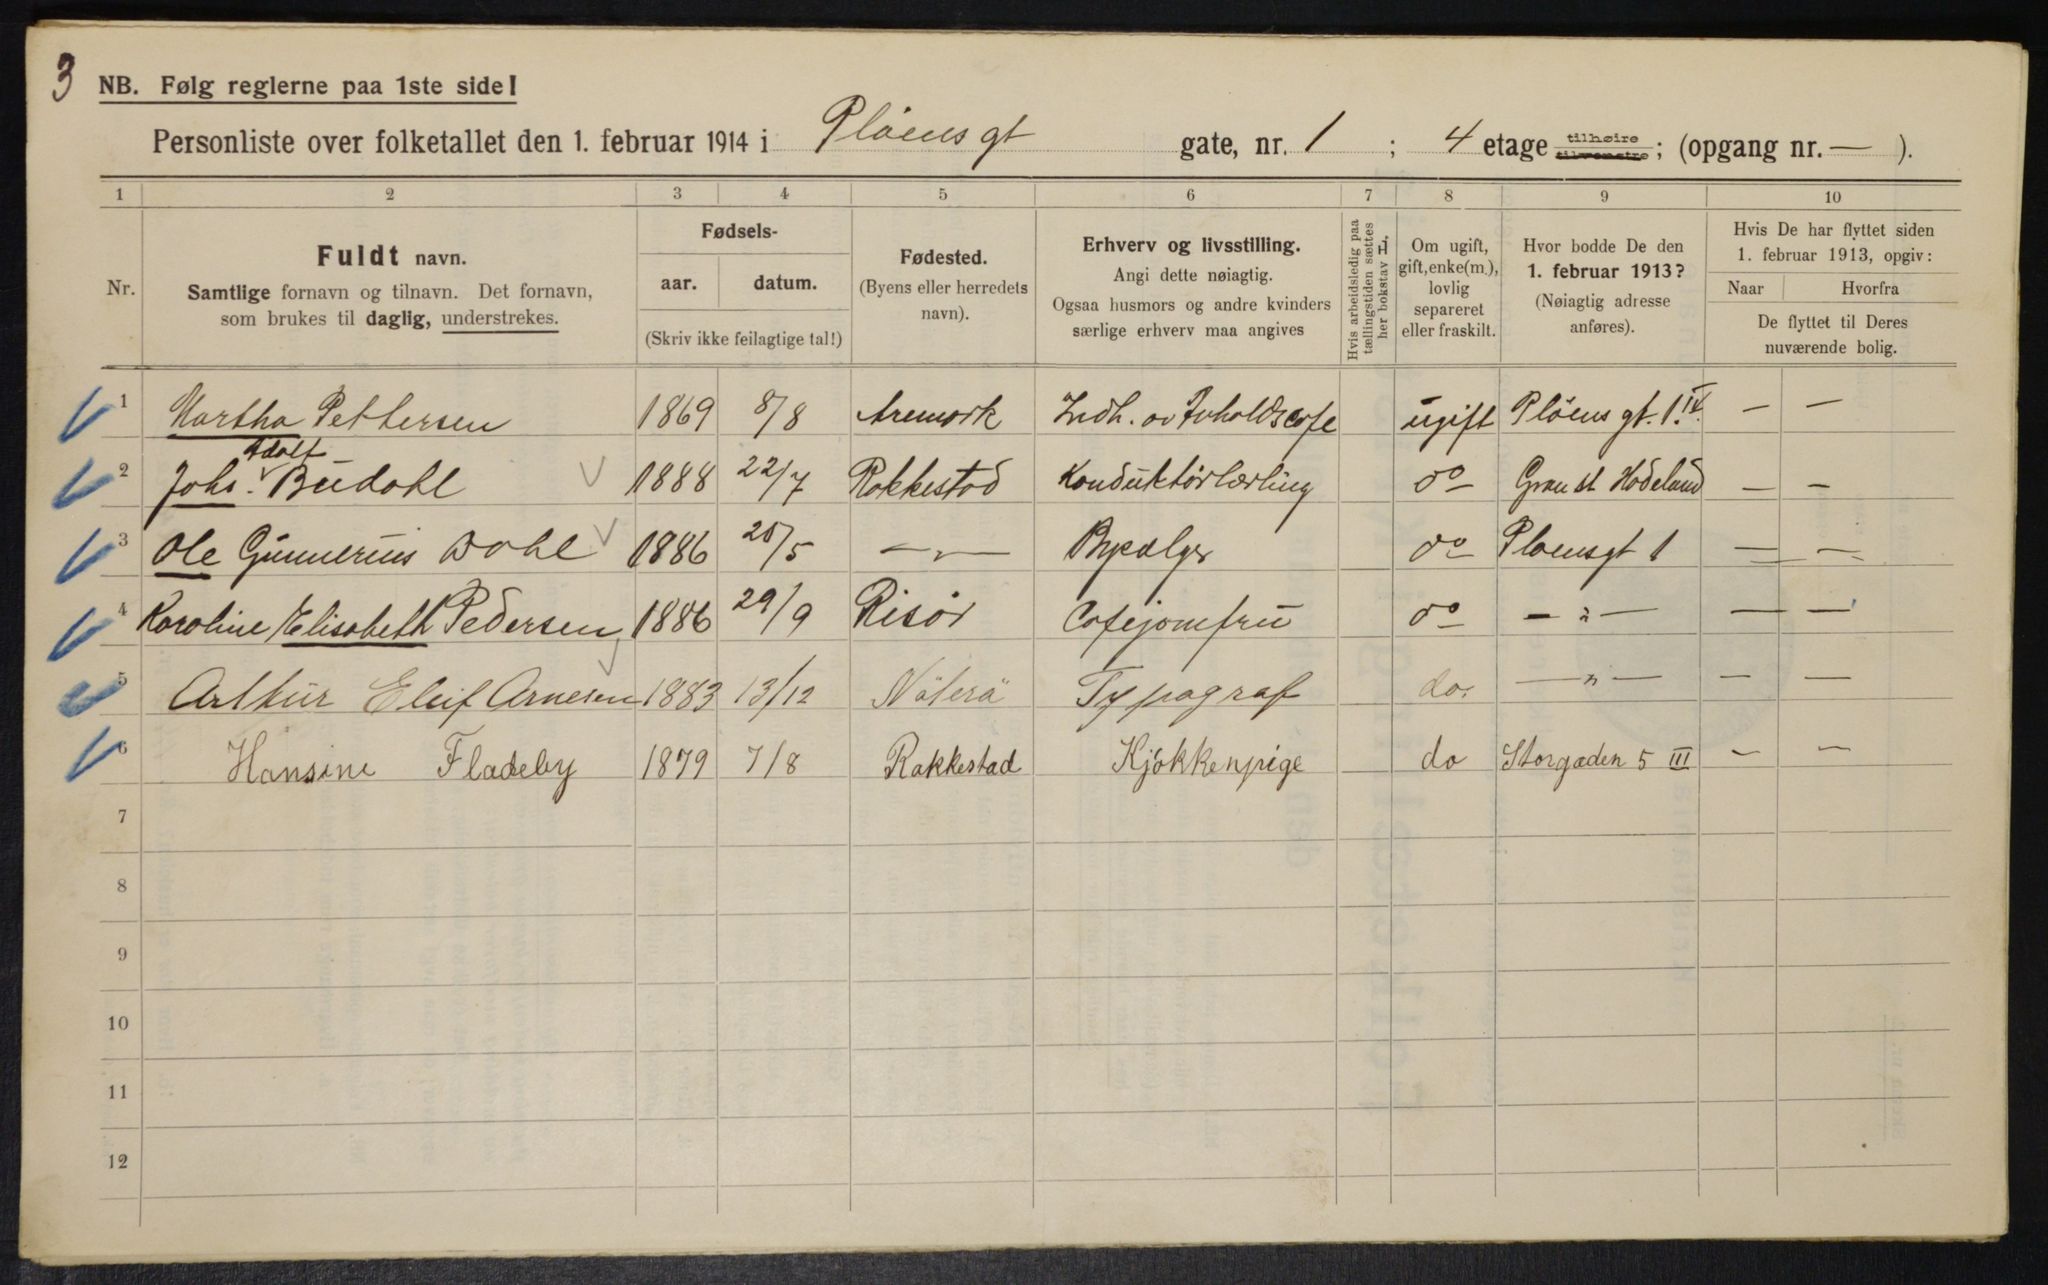 3
NB. Følg reglerne paa 1ste side!
Personliste over folketallet den 1. februar 1914 i Plöens gt gate, nr. 1 ; 4 etage tilhøire tilvenstre; (opgang nr. — ).
1 2 3 4 5 6 7 8 9 10
Nr.
Fuldt navn.
Samtlige fornavn og tilnavn. Det fornavn,
som brukes til daglig, understrekes.
Fødsels-
aar. datum.
(Skriv ikke feilagtige tal!)
Fødested.
(Byens eller herredets
navn).
Erhverv og livsstilling.
Angi dette nøiagtig.
Ogsaa husmors og andre kvinders
særlige erhverv maa angives
Hvis arbeidsledig paa
tællingstiden sættes
her bokstav L.
Om ugift,
gift, enke(m.),
lovlig
separeret
eller fraskilt.
Hvor bodde De den
1. februar 1913?
(Nøiagtig adresse
anføres).
Hvis De har flyttet siden
1. februar 1913, opgiv:
Naar Hvorfra
De flyttet til Deres
nuværende bolig.
1 Martha Pettersen 1869 8/8 Aremark Indh. av Avholdscafe ugift Plöens gt. 1. IV — —
Adolf
2 Johs. Budahl 1888 22/7 Rakkestad Konduktörlærling do Gran st Hadeland — —
3 Ole Gunnerius Dahl 1886 20/5 — „ — do Ploensgt 1 — —
4 Karoline Elisabeth Pedersen 1886 29/9 Risör Cafejomfru do — „ — — —
5 Arthur Eluf Arnesen 1883 13/12 Nöterö Typograf do. — „ — — —
6 Hansine Fladeby 1879 7/8 Rakkestad Kjökkenpige do Storgaden 5 III — —
7
8
9
10
11
12